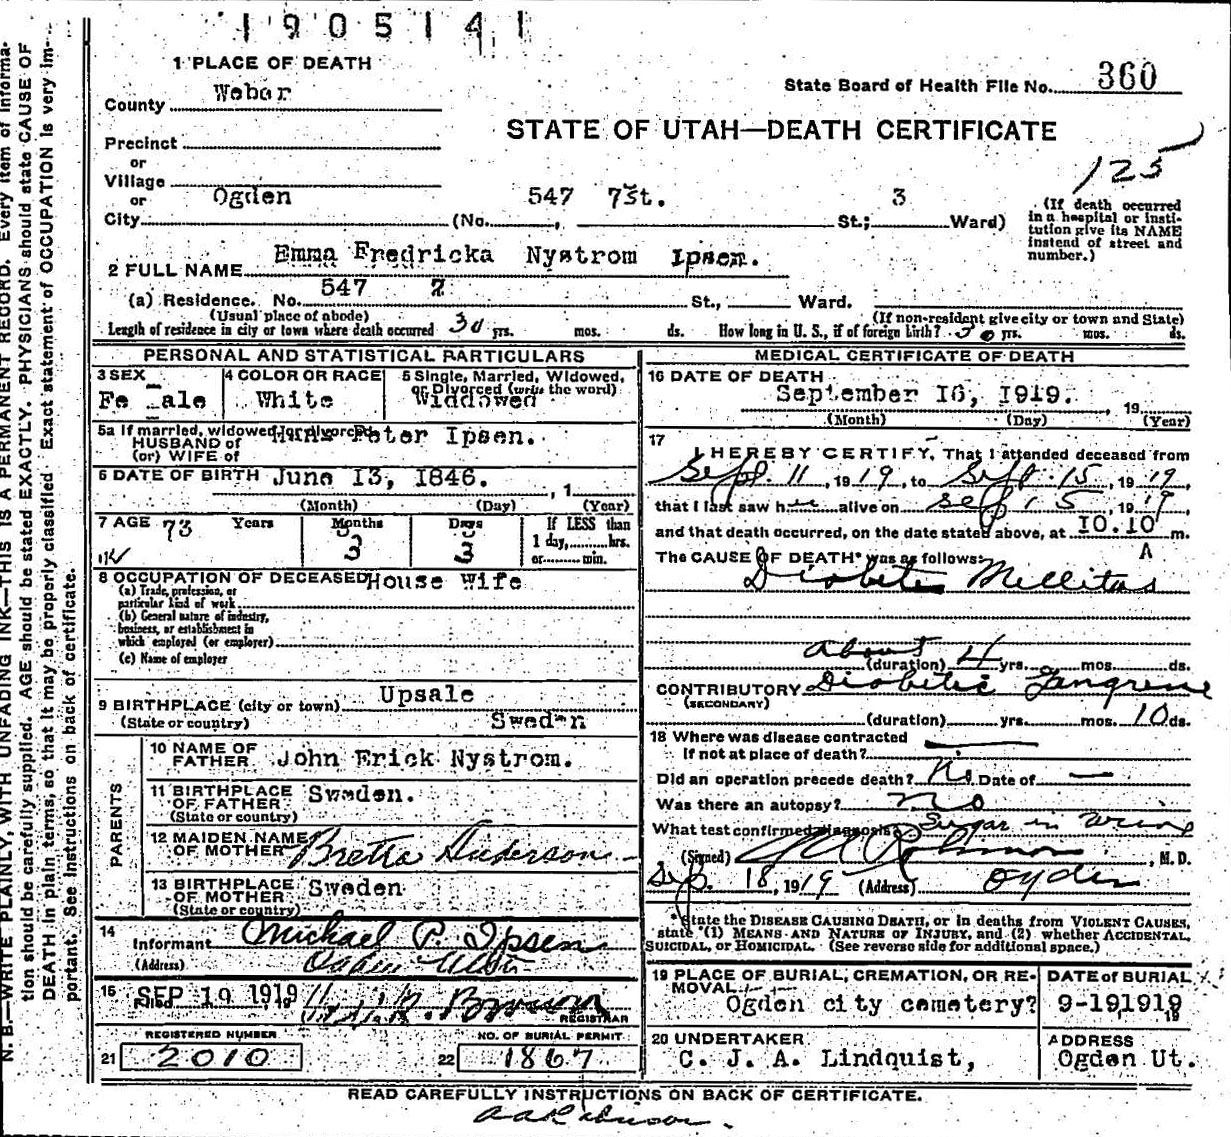 1905141
1 PLACE OF DEATH
County Weber
State Board of Health File No. 360
STATE OF UTAH—DEATH CERTIFICATE
Precinct
or
Village
or
City Ogden (No. 547 7 St. St.; 3 Ward)
125
(If death occurred in a hospital or institution give its NAME instead of street and number.)
2 FULL NAME Emma Fredricka Nystrom Ipsen.
(a) Residence. No. 547 7 St., Ward.
(Usual place of abode) (If non-resident give city or town and State)
Length of residence in city or town where death occurred 30 yrs. mos. ds. How long in U. S., if of foreign birth? 30 yrs. mos. ds.
PERSONAL AND STATISTICAL PARTICULARS
3 SEX Fe ale
4 COLOR OR RACE White
5 Single, Married, Widowed, or Divorced (write the word) Widdowed
5a If married, widowed, or divorced
HUSBAND of
(or) WIFE of Hans Peter Ipsen.
6 DATE OF BIRTH June 13, 1846. , 1
(Month) (Day) (Year)
7 AGE 73 Years 3 Months 3 Days If LESS than 1 day, hrs. or min.
8 OCCUPATION OF DECEASED House Wife
(a) Trade, profession, or particular kind of work
(b) General nature of industry, business, or establishment in which employed (or employer)
(c) Name of employer
9 BIRTHPLACE (city or town) Upsale
(State or country) Sweden
PARENTS
10 NAME OF FATHER John Erick Nystrom.
11 BIRTHPLACE OF FATHER Sweden.
(State or country)
12 MAIDEN NAME OF MOTHER Bretta Anderson
13 BIRTHPLACE OF MOTHER Sweden
(State or country)
14 Informant Michael P. Ipsen
(Address) Ogden Utah
15 Filed SEP 19 1919
REGISTRAR
REGISTERED NUMBER
21 2010
NO. OF BURIAL PERMIT
22 1867
MEDICAL CERTIFICATE OF DEATH
16 DATE OF DEATH September 16, 1919. , 19
(Month) (Day) (Year)
17 I HEREBY CERTIFY, That I attended deceased from
Sept. 11, 1919, to Sept. 15, 1919,
that I last saw her alive on Sep 15, 1919
and that death occurred, on the date stated above, at 10.10 A m.
The CAUSE OF DEATH* was as follows:
Diabetes Mellitas
About
(duration) 4 yrs. mos. ds.
CONTRIBUTORY Diabetic Gangrene
(SECONDARY)
(duration) yrs. mos. 10 ds.
18 Where was disease contracted
If not at place of death? —
Did an operation precede death? No Date of —
Was there an autopsy? no
What test confirmed diagnosis? Sugar in Urine
(Signed) Robinson, M. D.
Sep. 18, 1919 (Address) Ogden
*State the DISEASE CAUSING DEATH, or in deaths from VIOLENT CAUSES,
state (1) MEANS AND NATURE OF INJURY, and (2) whether ACCIDENTAL,
SUICIDAL, or HOMICIDAL. (See reverse side for additional space.)
19 PLACE OF BURIAL, CREMATION, OR REMOVAL Ogden city cemetery?
DATE OF BURIAL 9-19,1919 19
20 UNDERTAKER C. J. A. Lindquist,
ADDRESS Ogden Ut.
READ CAREFULLY INSTRUCTIONS ON BACK OF CERTIFICATE.
N. B.—WRITE PLAINLY, WITH UNFADING INK—THIS IS A PERMANENT RECORD. Every item of informa-
tion should be carefully supplied. AGE should be stated EXACTLY. PHYSICIANS should state CAUSE OF
DEATH in plain terms, so that it may be properly classified. Exact statement of OCCUPATION is very im-
portant. See instructions on back of certificate.